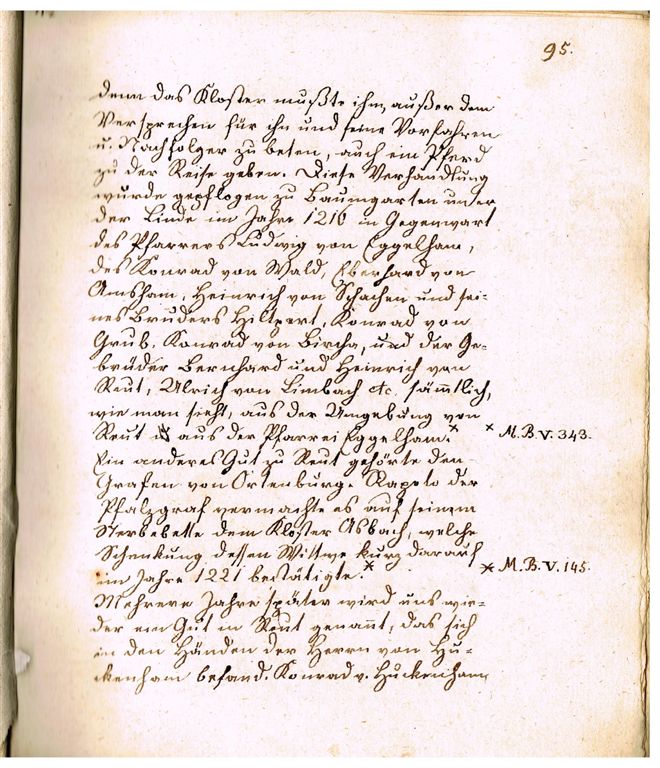 95.
denn das Kloster mußte ihm, außer dem
Versprechen für ihn und seine Vorfahren
u. Nachfolger zu beten, auch ein Pferd
zu der Reise geben. Diese Verhandlung
wurde gepflogen zu Baumgarten unter
der Linde im Jahre 1210 in Gegenwart
des Pfarrers Ludwig von Eggelham,
des Konrad von Wald, Eberhard von
Amsham, Heinrich von Schachen und sei=
nes Bruders Hiltpert, Konrad von
Grub, Konrad von Bircha, und der Ge=
brüder Bernhard und Heinrich von
Reut, Ulrich von Limbach etc. sämmtlich,
wie man sieht, aus der Umgebung von
Reut aus der Pfarrei Eggelham.× × M.B.V. 343.
Ein anderes Gut zu Reut gehörte den
Grafen von Ortenburg. Rapoto der
Pfalzgraf vermachte es auf seinem
Sterbebette dem Kloster Asbach, welche
Schenkung dessen Wittwe kurz darauf
im Jahre 1221 bestätigte.× × M.B.V. 145.
Mehrere Jahre später wird uns wie=
der ein Gut in Reut genannt, das sich
in den Händen der Herrn von Hu=
ckenham befand. Konrad v. Huckenham